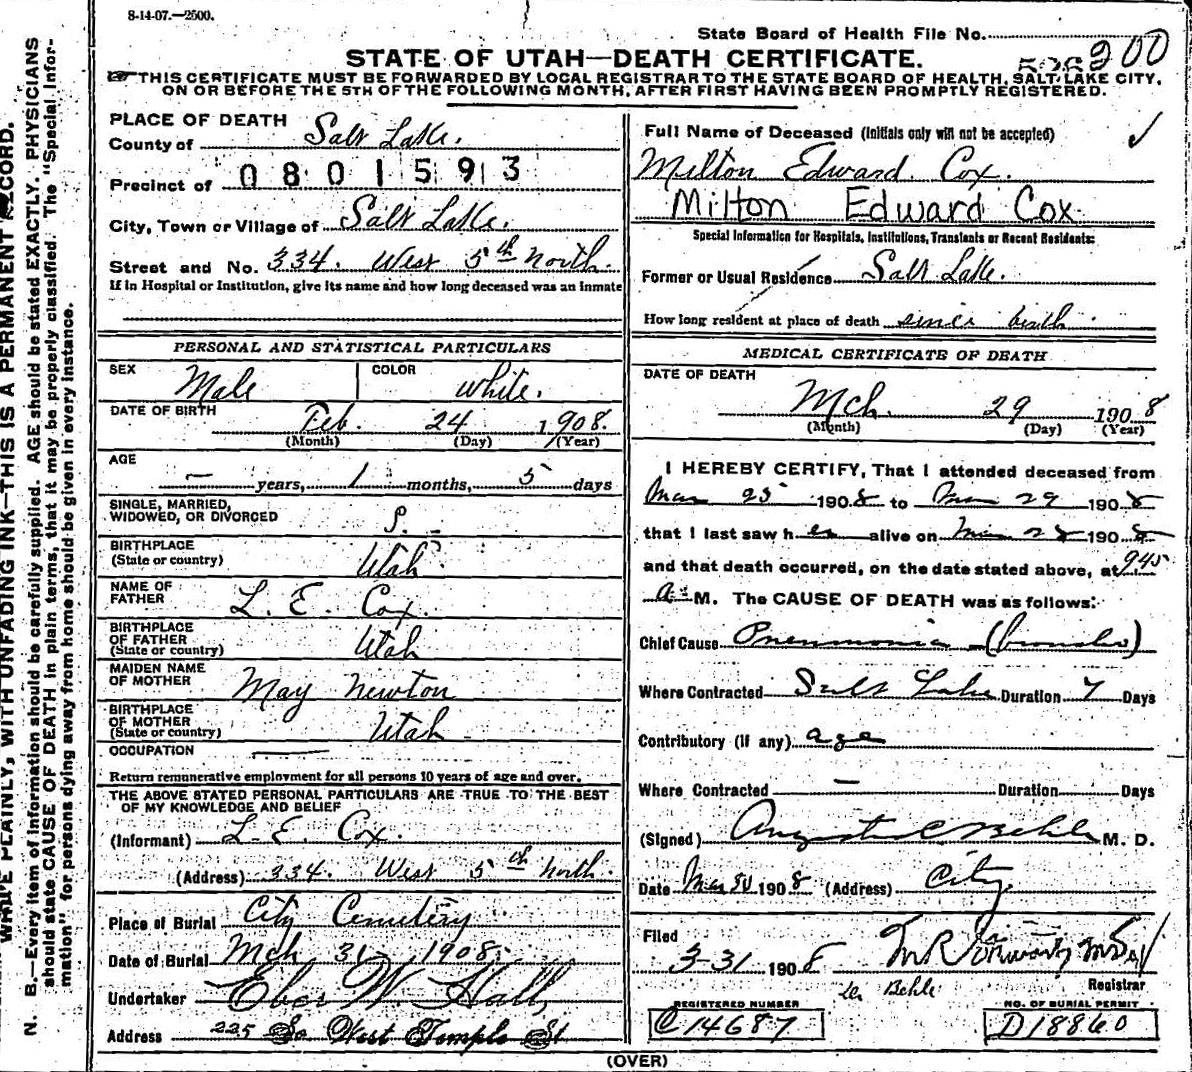 8-14-07.—2500.
State Board of Health File No.
200
STATE OF UTAH—DEATH CERTIFICATE.
THIS CERTIFICATE MUST BE FORWARDED BY LOCAL REGISTRAR TO THE STATE BOARD OF HEALTH, SALT LAKE CITY,
ON OR BEFORE THE 5TH OF THE FOLLOWING MONTH, AFTER FIRST HAVING BEEN PROMPTLY REGISTERED.
PLACE OF DEATH
County of Salt Lake.
Precinct of 0801593
City, Town or Village of Salt Lake.
Street and No. 334. West 5th North.
If in Hospital or Institution, give its name and how long deceased was an inmate
PERSONAL AND STATISTICAL PARTICULARS
SEX Male COLOR White.
DATE OF BIRTH Feb. 24 1908.
(Month) (Day) (Year)
AGE
— years, 1 months, 5 days
SINGLE, MARRIED,
WIDOWED, OR DIVORCED S.
BIRTHPLACE
(State or country) Utah
NAME OF
FATHER L. E. Cox.
BIRTHPLACE
OF FATHER
(State or country) Utah
MAIDEN NAME
OF MOTHER May Newton
BIRTHPLACE
OF MOTHER
(State or country) Utah
OCCUPATION —
Return remunerative employment for all persons 10 years of age and over.
THE ABOVE STATED PERSONAL PARTICULARS ARE TRUE TO THE BEST
OF MY KNOWLEDGE AND BELIEF
(Informant) L. E. Cox.
(Address) 334. West 5th North.
Place of Burial City Cemetery
Date of Burial Mch 31 1908.
Undertaker Eber W. Hall,
Address 225 So West Temple St
Full Name of Deceased (Initials only will not be accepted)
Milton Edward Cox.
Milton Edward Cox
Special Information for Hospitals, Institutions, Transients or Recent Residents:
Former or Usual Residence Salt Lake.
How long resident at place of death since birth.
MEDICAL CERTIFICATE OF DEATH
DATE OF DEATH
Mch. 29 1908
(Month) (Day) (Year)
I HEREBY CERTIFY, That I attended deceased from
Mar 25 1908 to Mar 29 1908
that I last saw h alive on Mar 28 1908
and that death occurred, on the date stated above, at 945
a M. The CAUSE OF DEATH was as follows:
Chief Cause Pneumonia (broncho)
Where Contracted Salt Lake Duration 7 Days
Contributory (if any) age
Where Contracted — Duration Days
(Signed) August C Behle M. D.
Date Mar 30 1908 (Address) City
Filed
3-31 1908
Registrar
Dr Behle
REGISTERED NUMBER
C14687
NO. OF BURIAL PERMIT
D18860
(OVER)
WRITE PLAINLY, WITH UNFADING INK—THIS IS A PERMANENT RECORD.
N. B.—Every item of information should be carefully supplied. AGE should be stated EXACTLY. PHYSICIANS
should state CAUSE OF DEATH in plain terms, that it may be properly classified. The "Special Infor-
mation" for persons dying away from home should be given in every instance.